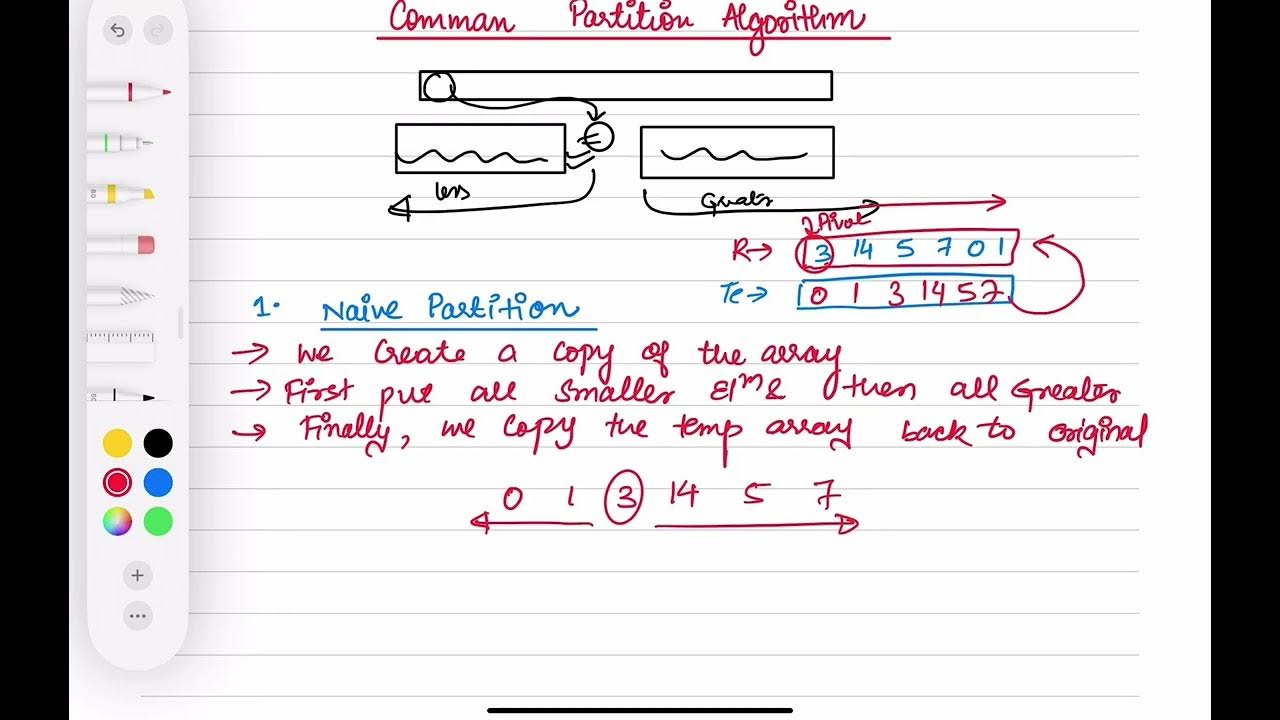 Comman Partition Algorithm
less
Greater
Pivot
R→ 3 14 5 7 0 1
Te→ 0 1 3 14 5 7
1. Naive Partition
→ We Create a copy of the array
→ First put all smaller Elm & then all Greater
→ Finally, we copy the temp array back to original
0 1 3 14 5 7